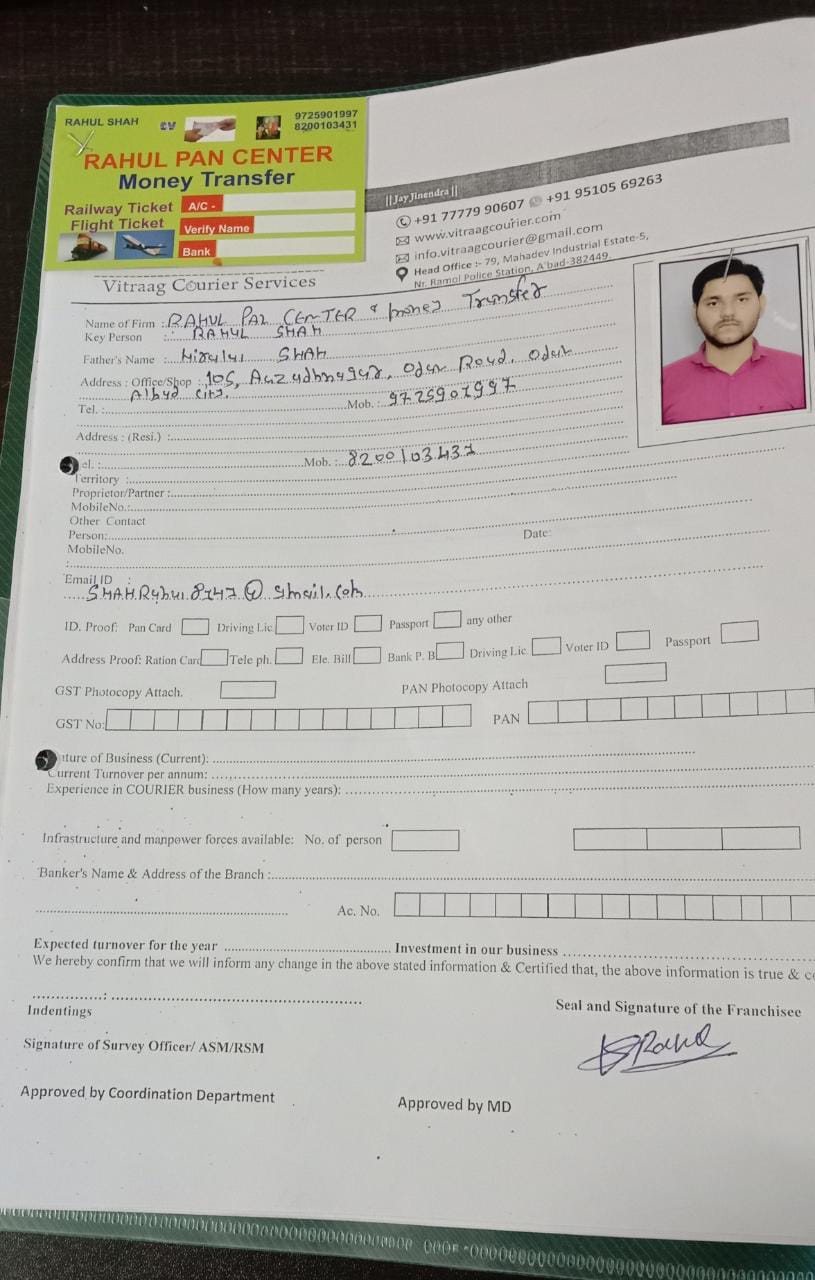 RAHUL SHAH
9725901997
8200103431
RAHUL PAN CENTER
Money Transfer
Railway Ticket
Flight Ticket
A/C -
Verify Name
Bank
||Jay Jinendra||
+91 77779 90607 +91 95105 69263
www.vitraagcourier.com
info.vitraagcourier@gmail.com
Head Office :- 79, Mahadev Industrial Estate-5,
Nr. Ramol Police Station, A'bad-382449.
Vitraag Courier Services
Name of Firm : RAHUL PAN CENTER & money Transfer
Key Person : RAHUL SHAH
Father's Name : SHAH
Address : Office/Shop : 105, Odhav Road, Odhav
City.
Tel. : Mob. : 9725901997
Address : (Resi.) :
Tel. : Mob. : 8200103431
Territory :
Proprietor/Partner :
MobileNo.:
Other Contact
Person: Date:
MobileNo.
:
Email ID :
SHAHRahul8747@gmail.com
ID. Proof: Pan Card Driving Lic. Voter ID Passport any other
Address Proof: Ration Card Tele ph. Ele. Bill Bank P. B Driving Lic. Voter ID Passport
GST Photocopy Attach. PAN Photocopy Attach
GST No: PAN
ture of Business (Current):
Current Turnover per annum:
Experience in COURIER business (How many years):
Infrastructure and manpower forces available: No. of person
Banker's Name & Address of the Branch :
Ac. No.
Expected turnover for the year Investment in our business
We hereby confirm that we will inform any change in the above stated information & Certified that, the above information is true &
:
Indentings
Seal and Signature of the Franchisee
Signature of Survey Officer/ ASM/RSM
Rahul
Approved by Coordination Department
Approved by MD